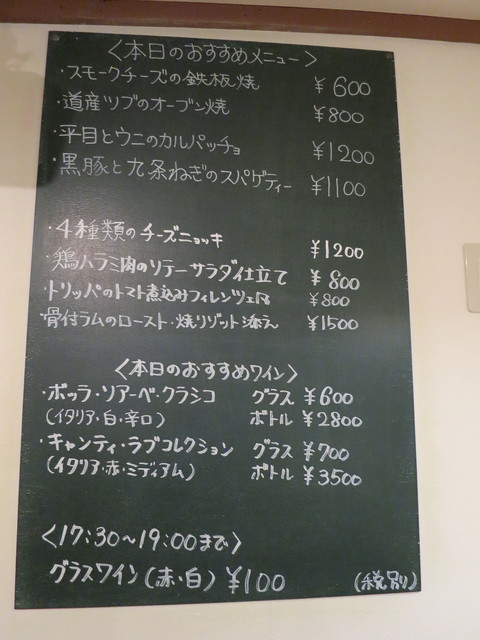 〈本日のおすすめメニュー〉
・スモークチーズの鉄板焼 ¥600
・道産ツブのオーブン焼 ¥800
・平目とウニのカルパッチョ ¥1200
・黒豚と九条ねぎのスパゲティー ¥1100
・4種類のチーズニョッキ ¥1200
・鶏ハラミ肉のソテーサラダ仕立て ¥800
・トリッパのトマト煮込みフィレンツェ風 ¥800
・骨付ラムのロースト・焼リゾット添え ¥1500
〈本日のおすすめワイン〉
・ボッラ・ソアーベ・クラシコ グラス ¥600
(イタリア・白・辛口) ボトル ¥2800
・キャンティ・ラブコレクション グラス ¥700
(イタリア・赤・ミディアム) ボトル ¥3500
〈17:30～19:00まで〉
グラスワイン(赤・白) ¥100 (税別)